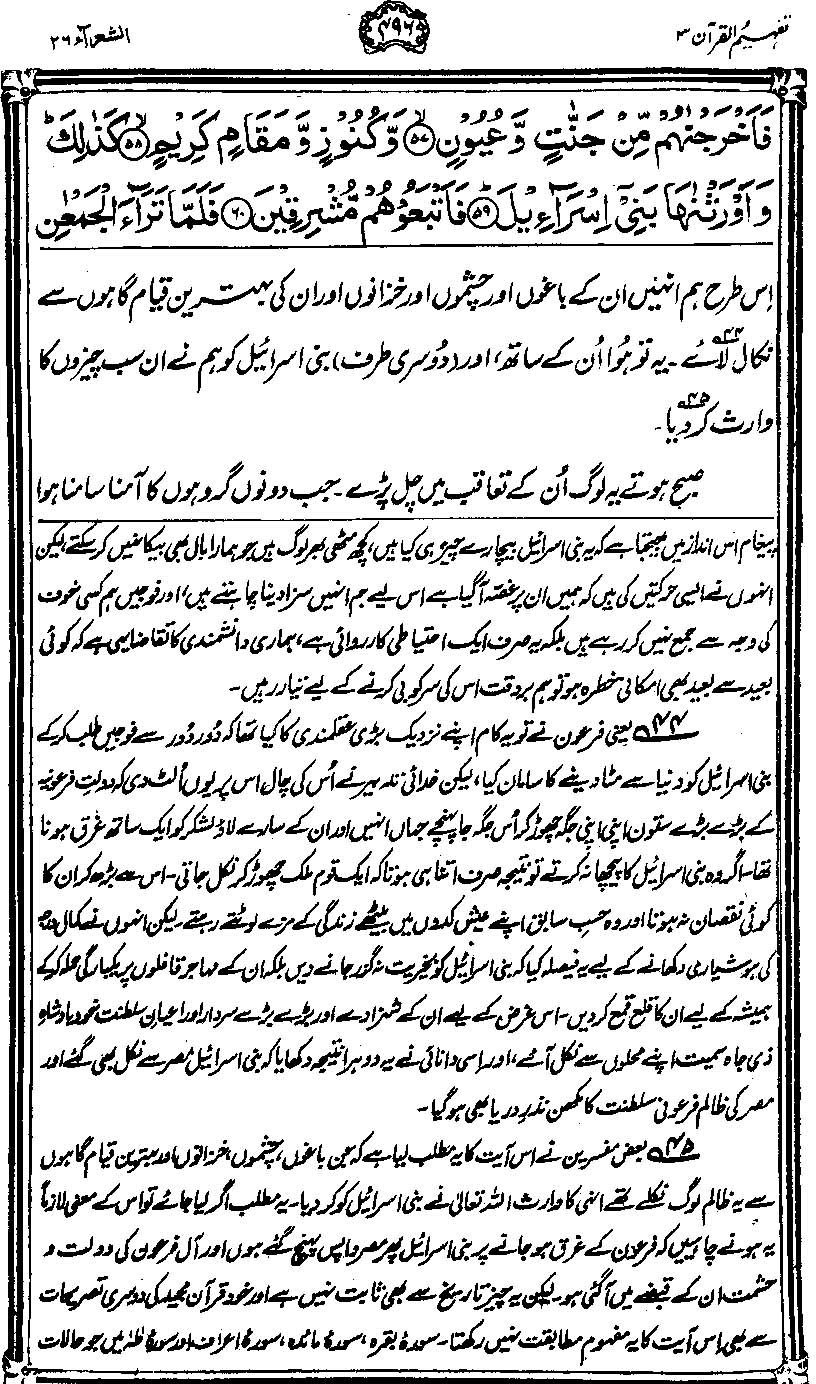 تفہیم القرآن ۳
۴۹۶
الشعرآء ۲۶
فَاَخْرَجْنٰهُمْ مِّنْ جَنّٰتٍ وَّعُيُوْنٍ ۝۵۷ وَّكُنُوْزٍ وَّمَقَامٍ كَرِيْمٍ ۝۵۸ كَذٰلِكَ
وَاَوْرَثْنٰهَا بَنِيْٓ اِسْرَآءِيْلَ ۝۵۹ فَاَتْبَعُوْهُمْ مُّشْرِقِيْنَ ۝۶۰ فَلَمَّا تَرَآءَ الْجَمْعٰنِ
اِس طرح ہم انہیں ان کے باغوں اور چشموں اور خزانوں اور ان کی بہترین قیام گاہوں سے
نکال لائے۴۴۔ یہ تو ہُوا اُن کے ساتھ، اور (دُوسری طرف) بنی اسرائیل کو ہم نے ان سب چیزوں کا
وارث کر دیا۴۵۔
صبح ہوتے یہ لوگ اُن کے تعاقب میں چل پڑے۔ جب دونوں گروہوں کا آمنا سامنا ہوا
پیغام اس انداز میں بھیجتا ہے کہ یہ بنی اسرائیل بیچارے چیز ہی کیا ہیں، کچھ مٹھی بھر لوگ ہیں جو ہمارا بال بھی بیکا نہیں کر سکتے، لیکن
انہوں نے ایسی حرکتیں کی ہیں کہ ہمیں ان پر غصہ آگیا ہے اس لیے ہم انہیں سزا دینا چاہتے ہیں، اور فوجیں ہم کسی خوف
کی وجہ سے جمع نہیں کر رہے ہیں بلکہ یہ صرف ایک احتیاطی کارروائی ہے، ہماری دانشمندی کا تقاضا یہی ہے کہ کوئی
بعید سے بعید بھی امکانی خطرہ ہو تو ہم بروقت اس کی سرکوبی کرنے کے لیے تیار رہیں۔
۴۴ یعنی فرعون نے تو یہ کام اپنے نزدیک بڑی عقلمندی کا کیا تھا کہ دُور دُور سے فوجیں طلب کر کے
بنی اسرائیل کو دنیا سے مٹا دینے کا سامان کیا، لیکن خدائی تدبیر نے اُس کی چال اس پر یوں اُلٹ دی کہ دولتِ فرعونیہ
کے بڑے بڑے ستون اپنی اپنی جگہ چھوڑ کر اُس جگہ جا پہنچے جہاں انہیں اور ان کے سارے لاؤ لشکر کو ایک ساتھ غرق ہونا
تھا۔ اگر وہ بنی اسرائیل کا پیچھا نہ کرتے تو نتیجہ صرف اتنا ہی ہوتا کہ ایک قوم ملک چھوڑ کر نکل جاتی۔ اس سے بڑھ کر ان کا
کوئی نقصان نہ ہوتا اور وہ حسبِ سابق اپنے عیش کدوں میں بیٹھے زندگی کے مزے لوٹتے رہتے۔ لیکن انہوں نے کمال درجہ
کی ہوشیاری دکھانے کے لیے یہ فیصلہ کیا کہ بنی اسرائیل کو بخیریت نہ گزر جانے دیں بلکہ ان کے مہاجر قافلوں پر یکبارگی حملہ کر کے
ہمیشہ کے لیے ان کا قلع قمع کر دیں۔ اس غرض کے لیے ان کے شہزادے اور بڑے بڑے سردار اور اعیانِ سلطنت خود بادشاہِ
ذی جاہ سمیت اپنے محلوں سے نکل آئے، اور اسی دانائی نے یہ دوہرا نتیجہ دکھایا کہ بنی اسرائیل مصر سے نکل بھی گئے اور
مصر کی ظالم فرعونی سلطنت کا مکھن نذرِ دریا بھی ہو گیا۔
۴۵ بعض مفسرین نے اس آیت کا یہ مطلب لیا ہے کہ جن باغوں، چشموں، خزانوں اور بہترین قیام گاہوں
سے یہ ظالم لوگ نکلے تھے انہی کا وارث اللہ تعالیٰ نے بنی اسرائیل کو کر دیا۔ یہ مطلب اگر لیا جائے تو اس کے معنی لازماً
یہ ہونے چاہییں کہ فرعون کے غرق ہو جانے پر بنی اسرائیل پھر مصر واپس پہنچ گئے ہوں اور آلِ فرعون کی دولت و
حشمت ان کے قبضے میں آگئی ہو۔ لیکن یہ چیز تاریخ سے بھی ثابت نہیں ہے اور خود قرآن مجید کی دوسری تصریحات
سے بھی اِس آیت کا یہ مفہوم مطابقت نہیں رکھتا۔ سورۂ بقرہ، سورۂ مائدہ، سورۂ اعراف اور سورۂ طٰہٰ میں جو حالات